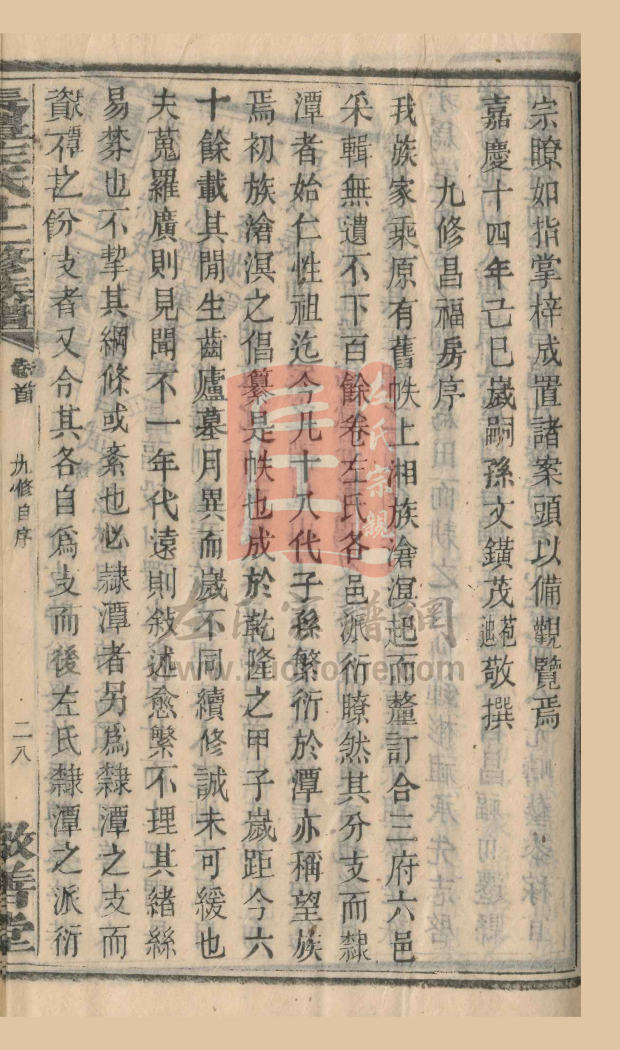 宗瞭如指掌梓成置諸案頭以備觀覽焉
嘉慶十四年己巳嵗嗣孫文鐄茂苞廸敬撰
九修昌福房序
我族家乘原有舊帙上湘族滄溟起而釐訂合三府六邑
采輯無遺不下百餘卷左氏各邑派衍瞭然其分支而隸
潭者始仁性祖迄今凡十八代子孫繁衍於潭亦稱望族
焉初族滄溟之倡纂是帙也成於乾隆之甲子嵗距今六
十餘載其閒生齒廬墓月異而嵗不同續修誠未可緩也
夫蒐羅廣則見聞不一年代遠則敍述愈繁不理其緒絲
易棼也不挈其綱條或紊也必隸潭者另爲隸潭之支而
潭之分支者又令其各自爲支而後左氏隸潭之派衍
左氏十二修族譜
卷首
九修自序
二八
敬善堂
左氏宗親
左氏家譜網